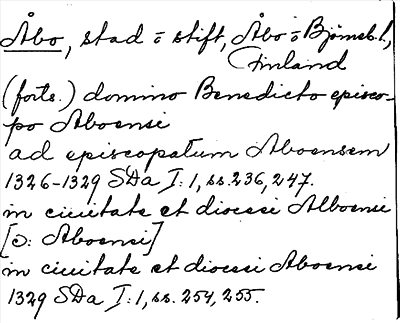 Åbo, stad o stift, Åbo o Björneb. l.,
Finland
(forts.) domino Benedicto episco-
po Aboensi
ad episcopatum Aboensem
1326-1329 SDa I:1, ss. 236, 247.
in ciuitate et diocesi Alboensi
[ɔ: Aboensi]
in ciuitate et diocesi Aboensi
1329 SDa I:1, ss. 254, 255.